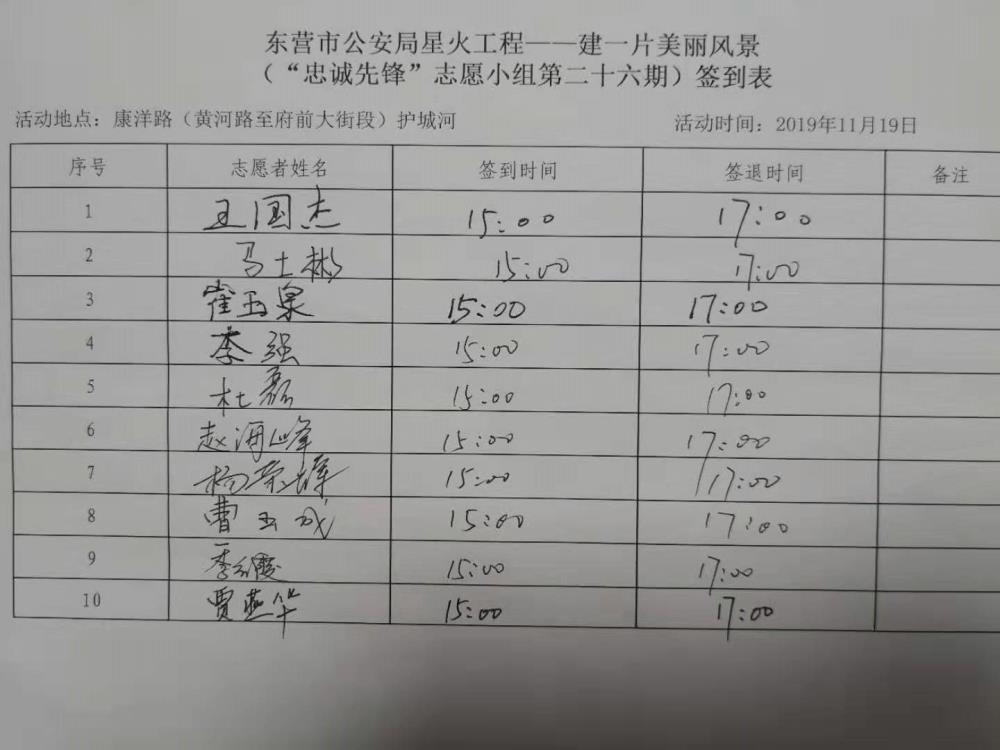 东营市公安局星火工程——建一片美丽风景
（“忠诚先锋”志愿小组第二十六期）签到表
活动地点：康洋路（黄河路至府前大街段）护城河 活动时间：2019年11月19日
序号 志愿者姓名 签到时间 签退时间 备注
1 王国杰 15:00 17:00
2 马士彬 15:00 17:00
3 崔玉泉 15:00 17:00
4 李强 15:00 17:00
5 杜磊 15:00 17:00
6 赵海峰 15:00 17:00
7 杨荣 15:00 17:00
8 曹玉成 15:00 17:00
9 季 霞 15:00 17:00
10 贾燕华 15:00 17:00